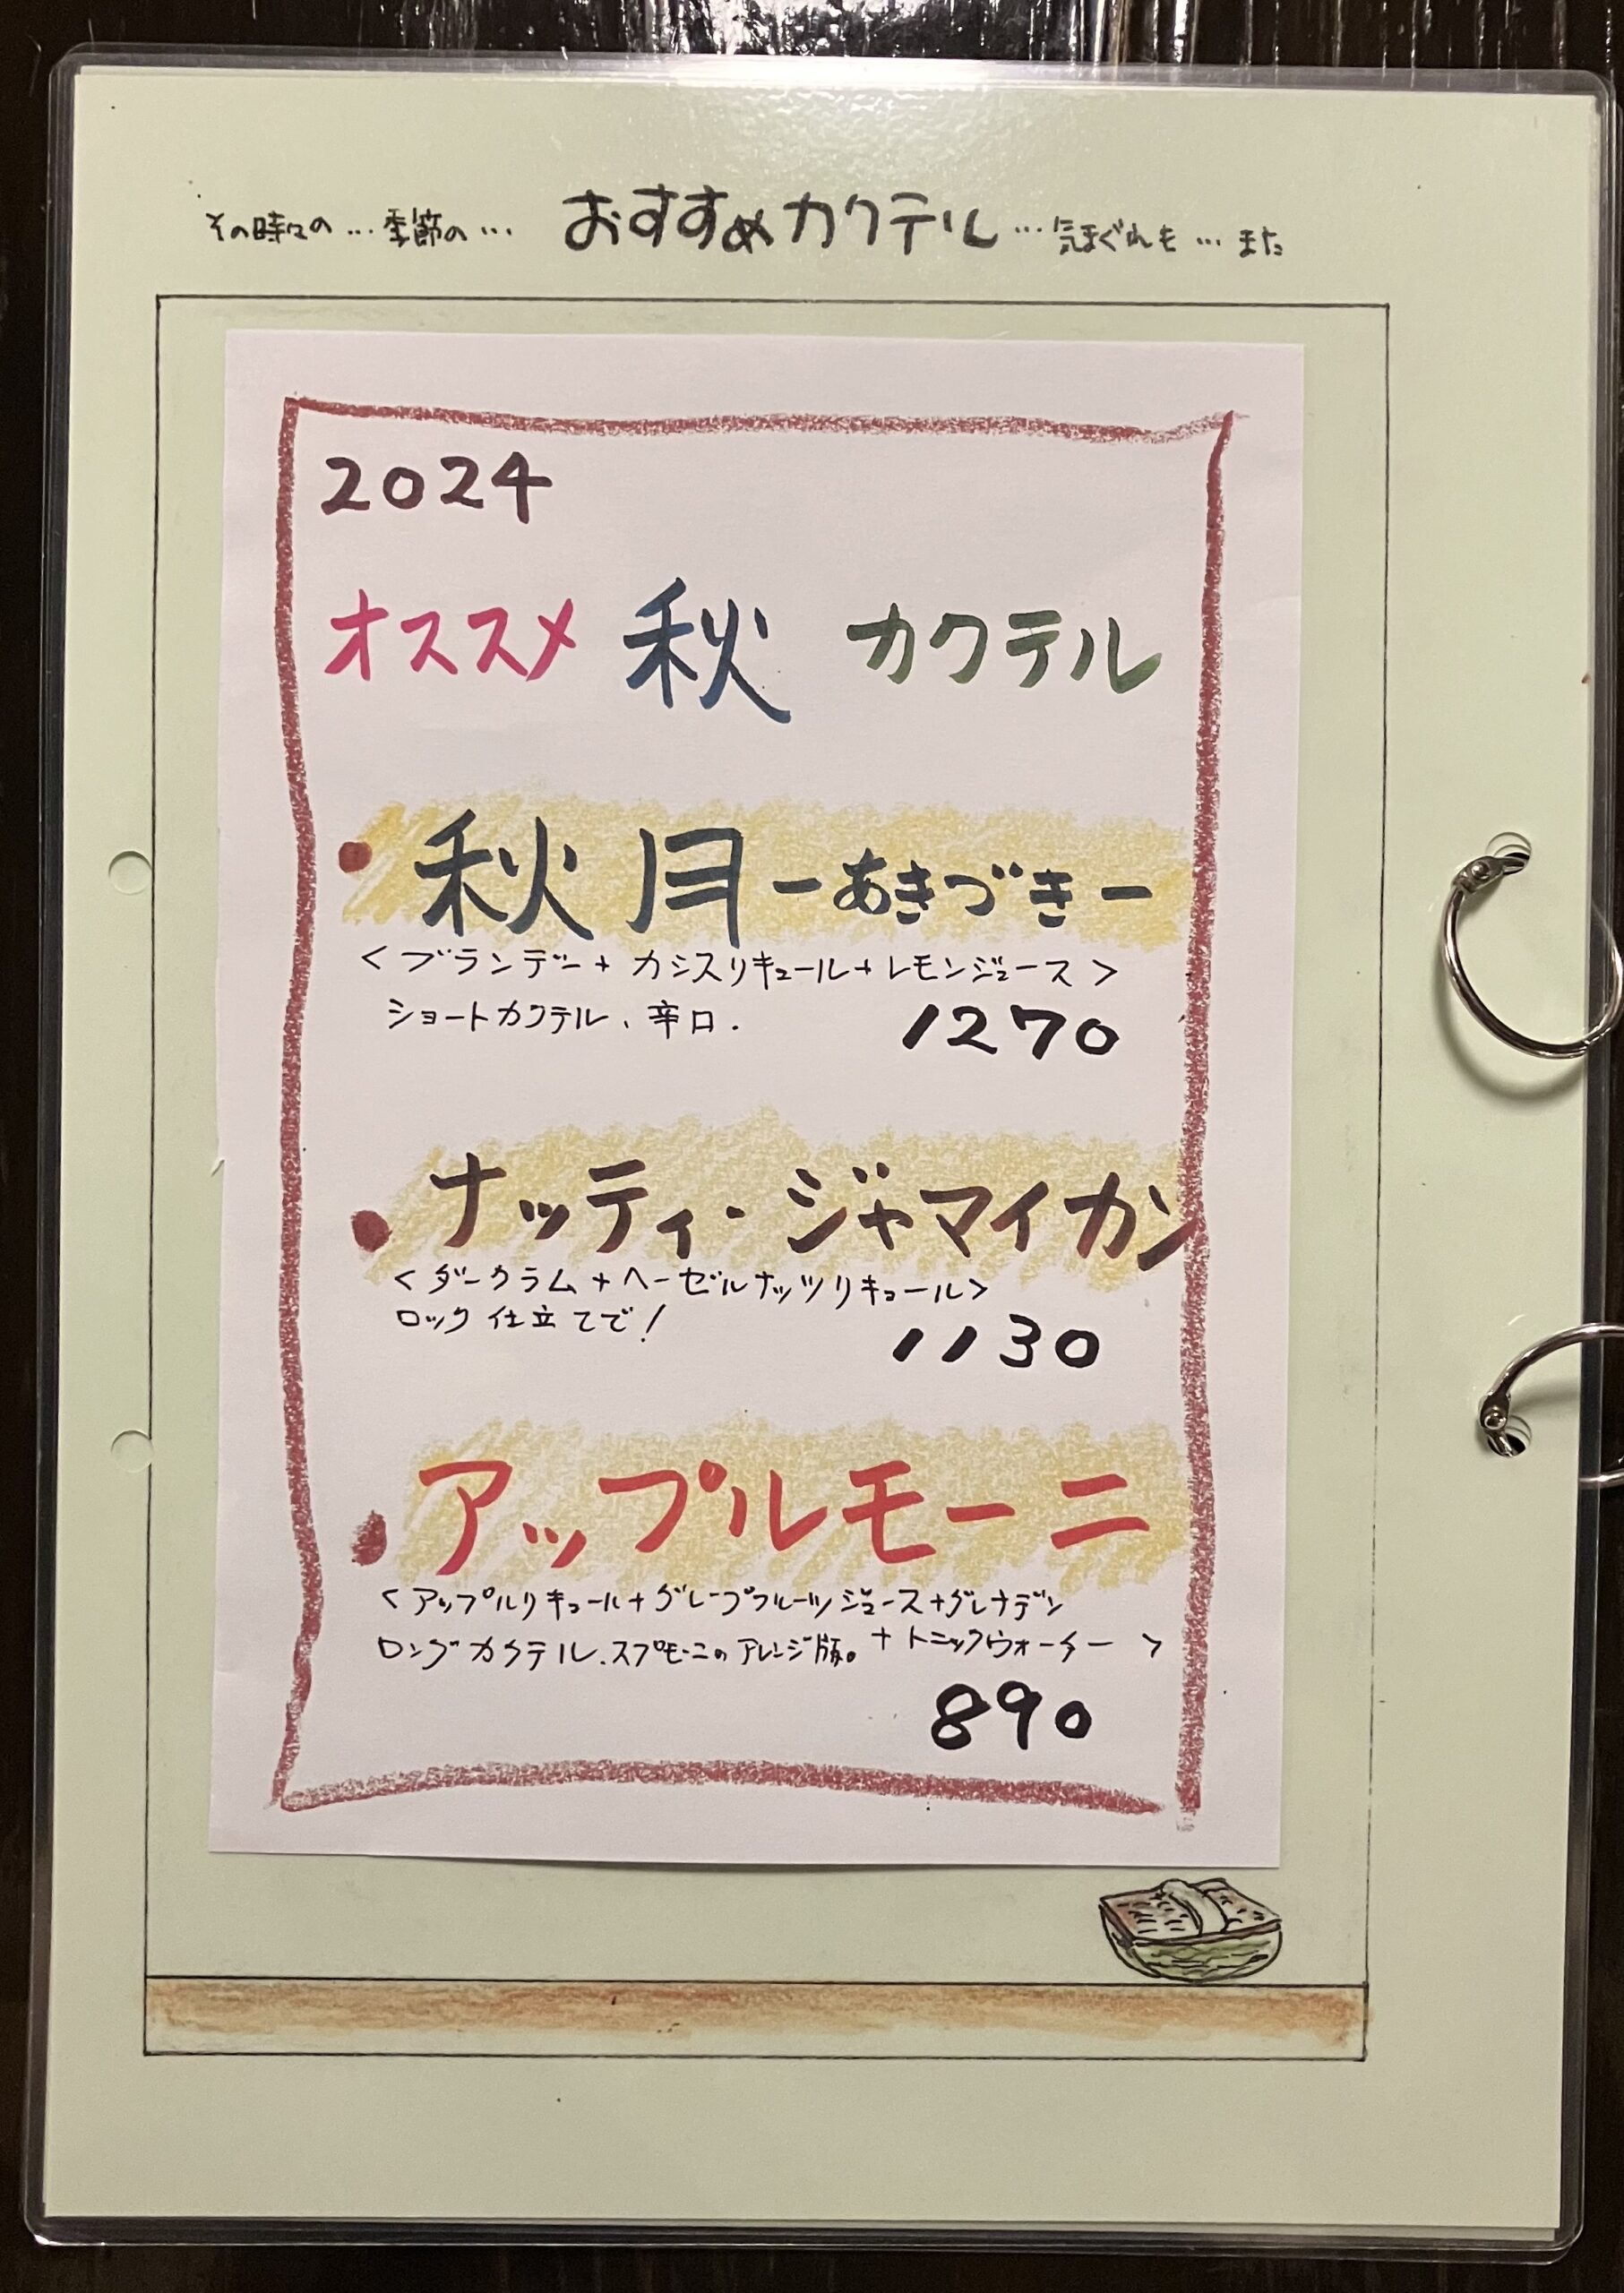 その時々の…季節の… おすすめカクテル…気まぐれも…また
2024
オススメ 秋 カクテル
・秋月ーあきづきー
<ブランデー+カシスリキュール+レモンジュース>
ショートカクテル、辛口. 1270
・ナッティ・ジャマイカン
<ダークラム+ヘーゼルナッツリキュール>
ロック仕立てで! 1130
・アップルモーニ
<アップルリキュール+グレープフルーツジュース+グレナデン
ロングカクテル.スプモーニのアレンジ版。+トニックウォーター>
890